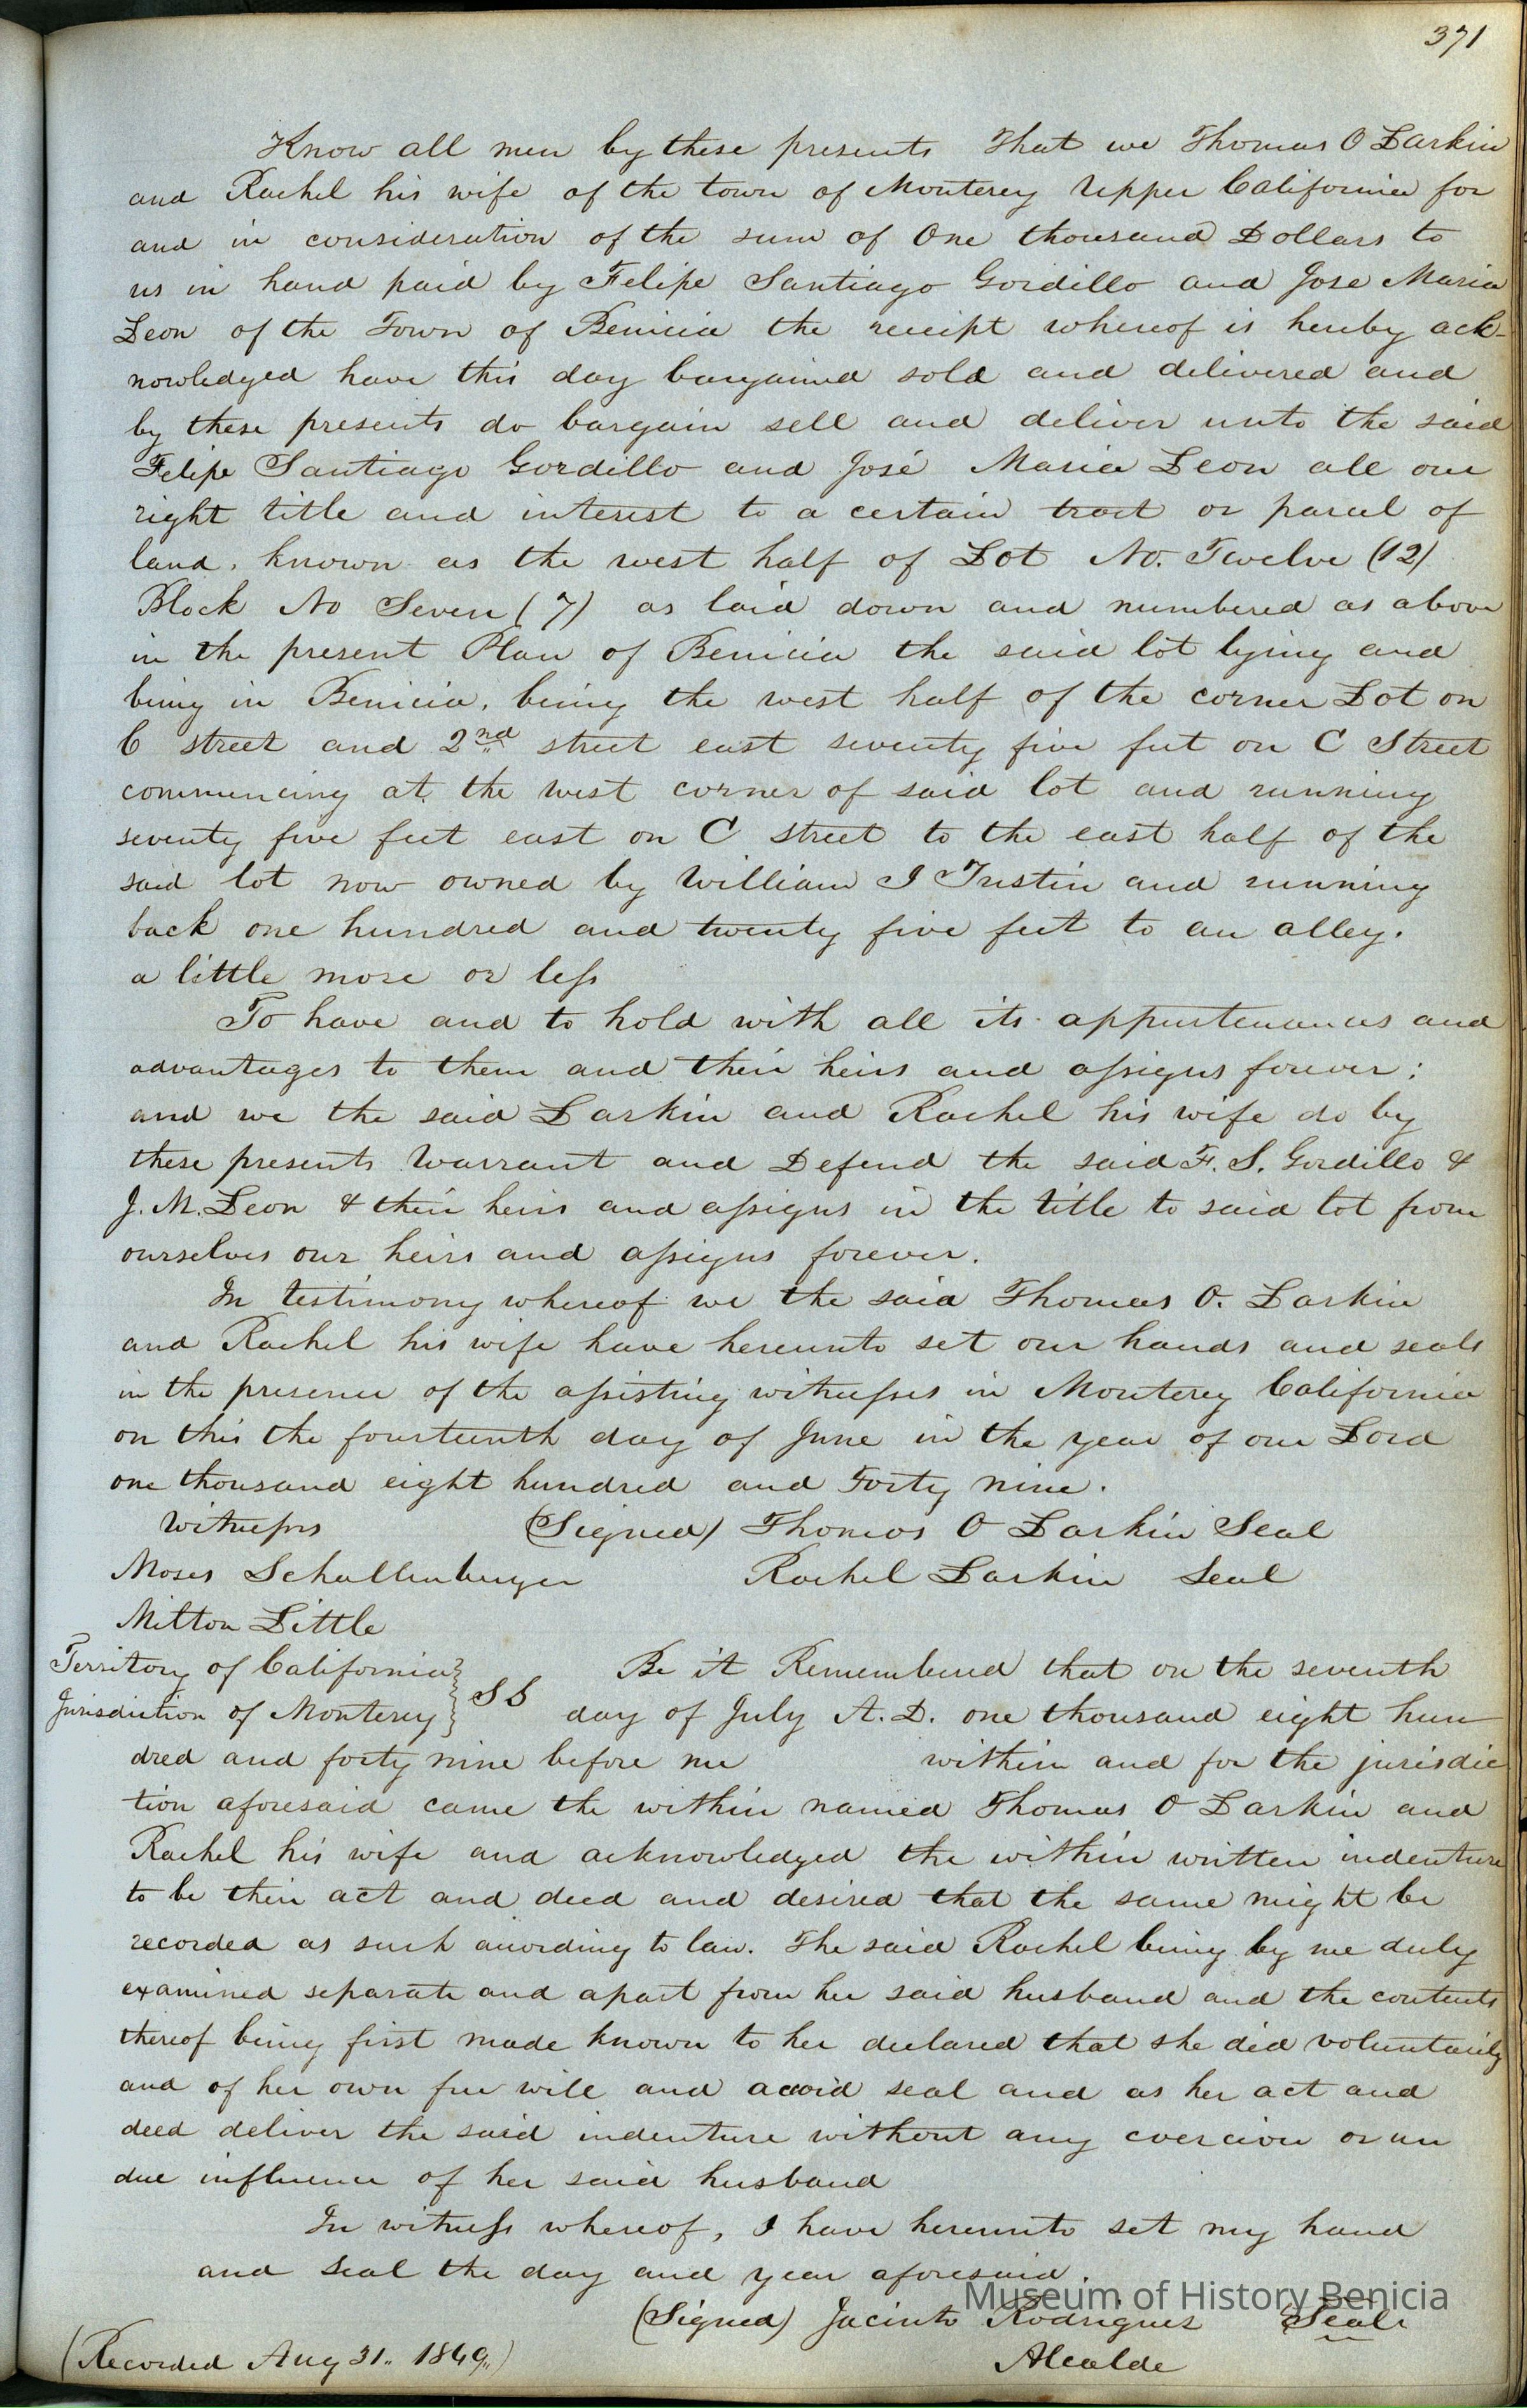 371
Know all men by these presents That we Thomas O Larkin
and Rachel his wife of the town of Monterey Upper California for
and in consideration of the sum of One thousand Dollars to
us in hand paid by Felipe Santiago Gordillo and Jose Maria
Leon of the Town of Benicia the receipt whereof is hereby ack-
nowledged have this day bargained sold and delivered and
by these presents do bargain sell and deliver unto the said
Felipe Santiago Gordillo and José Maria Leon all our
right title and interest to a certain tract or parcel of
land, known as the west half of Lot No. Twelve (12)
Block No Seven (7) as laid down and numbered as above
in the present Plan of Benicia the said lot lying and
being in Benicia, being the west half of the corner Lot on
C street and 2nd street east seventy five feet on C Street
commencing at the west corner of said lot and running
seventy five feet east on C street to the east half of the
said lot now owned by William I Tustin and running
back one hundred and twenty five feet to an alley.
a little more or less
To have and to hold with all its appurtenances and
advantages to them and their heirs and assigns forever;
and we the said Larkin and Rachel his wife do by
these presents Warrant and Defend the said F. S. Gordillo &
J. M. Leon & their heirs and assigns in the title to said lot from
ourselves our heirs and assigns forever.
In testimony whereof we the said Thomas O. Larkin
and Rachel his wife have hereunto set our hands and seals
in the presence of the assisting witnesses in Monterey California
on this the fourteenth day of June in the year of our Lord
one thousand eight hundred and Forty nine.
Witnesses (Signed) Thomas O Larkin Seal
Moses Schallenberger Rachel Larkin Seal
Milton Little
Territory of California } SS Be it Remembered that on the seventh
Jurisdiction of Monterey } day of July A.D. one thousand eight hun
dred and forty nine before me within and for the jurisdic
tion aforesaid came the within named Thomas O Larkin and
Rachel his wife and acknowledged the within written indenture
to be their act and deed and desired that the same might be
recorded as such according to law. The said Rachel being by me duly
examined separate and apart from her said husband and the contents
thereof being first made known to her declared that she did voluntarily
and of her own free will and accord seal and as her act and
deed deliver the said indenture without any coercion or un
due influence of her said husband
In witness whereof, I have hereunto set my hand
and seal the day and year aforesaid.
Museum of History Benicia
(Signed) Jacinto Rodriguez Seal
(Recorded Aug 31. 1849.) Alcalde